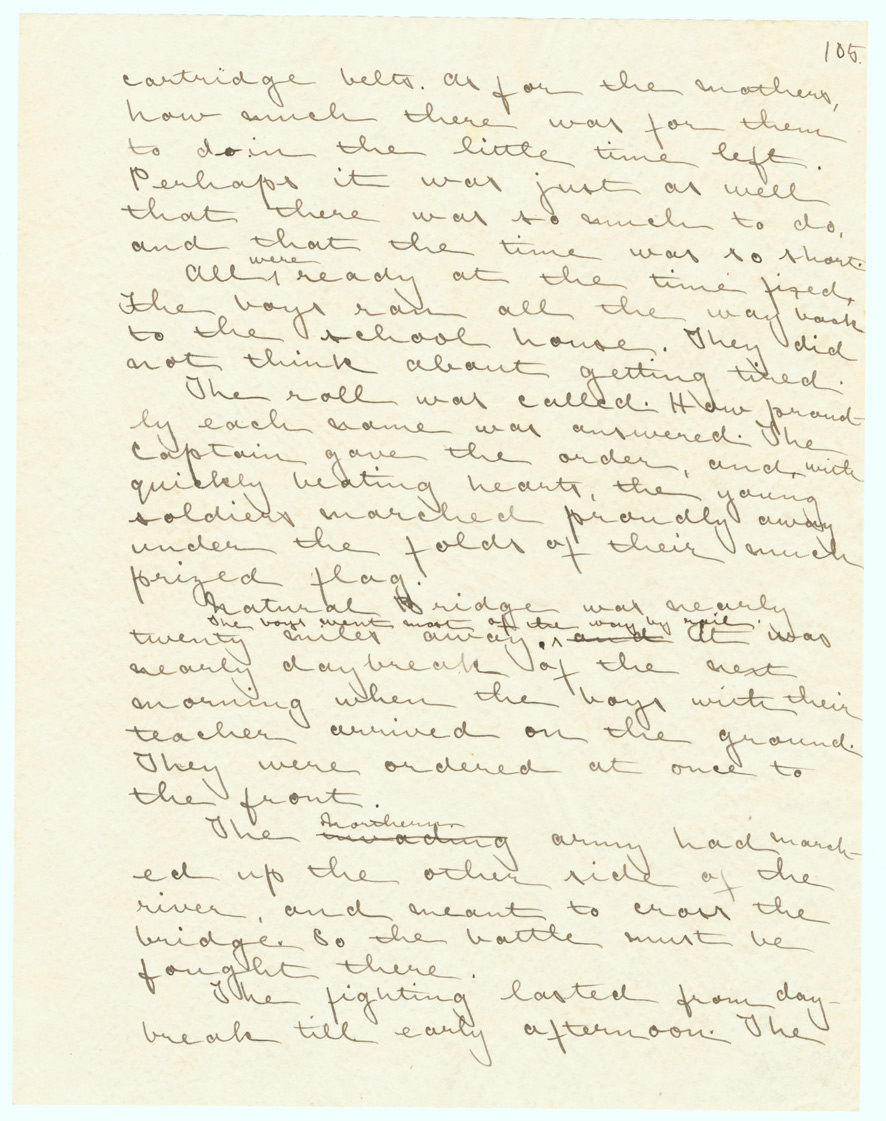 105.
cartridge belts. As for the mothers,
how much there was for them
to do in the little time left.
Perhaps it was just as well
that there was so much to do,
and that the time was so short.
were
All ready at the time fixed.
The boys ran all the way back
to the school house. They did
not think about getting tired.
The roll was called. How proud-
ly each name was answered. The
Captain gave the order, and, with
quickly beating hearts, the young
soldiers marched proudly away
under the folds of their much
prized flag.
Natural Bridge was nearly
The boys went most of the way by rail.
twenty miles away, and it was
nearly daybreak of the next
morning when the boys with their
teacher arrived on the ground.
They were ordered at once to
the front.
Northern
The invading army had march-
ed up the other side of the
river, and meant to cross the
bridge. So the battle must be
fought there.
The fighting lasted from day-
break till early afternoon. The